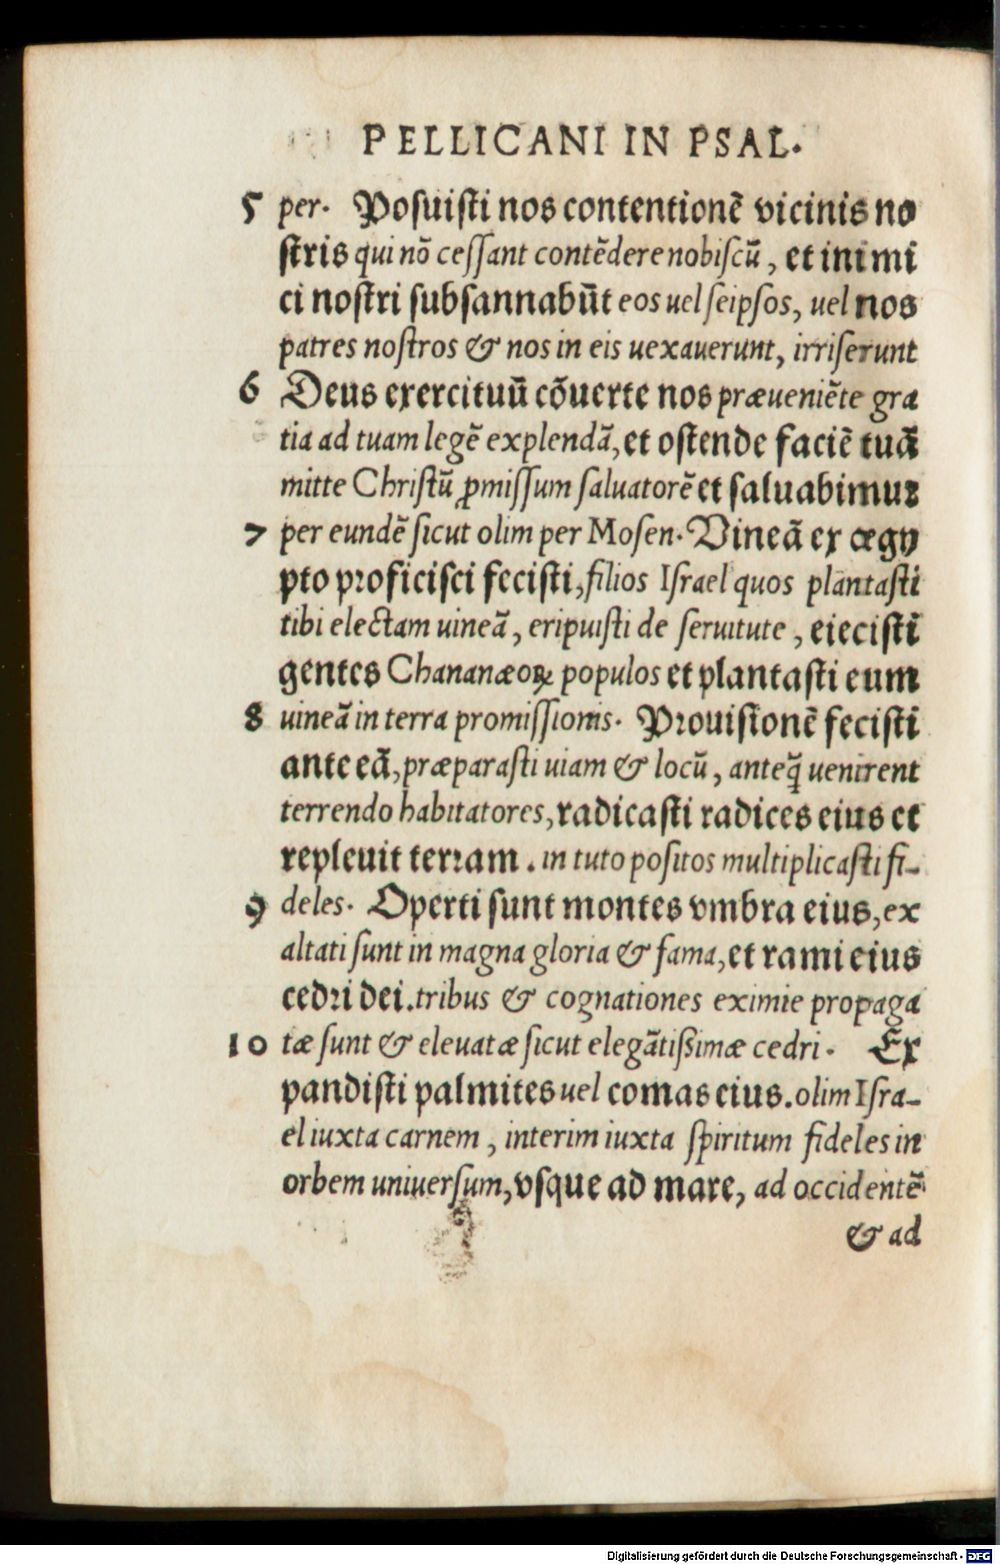 PELLICANI IN PSAL.
5 per. Posuisti nos contentionē vicinis no
stris qui nō cessant contēdere nobiscū, et inimi
ci nostri subsannabūt eos uel seipsos, uel nos
patres nostros & nos in eis uexauerunt, irriserunt
6 Deus exercituū cōuerte nos præueniēte gra
tia ad tuam legē explendā, et ostende faciē tuā
mitte Christū ꝓmissum saluatorē et saluabimur
7 per eundē sicut olim per Mosen. Vineā ex ægy
pto proficisci fecisti, filios Israel quos plantasti
tibi electam uineā, eripuisti de seruitute, eiecisti
gentes Chananæoꝝ populos et plantasti eum
8 uineā in terra promissionis. Prouisionē fecisti
ante eā, præparasti uiam & locū, anteq̄ uenirent
terrendo habitatores, radicasti radices eius et
repleuit terram. in tuto positos multiplicasti fi-
9 deles. Operti sunt montes vmbra eius, ex
altati sunt in magna gloria & fama, et rami eius
cedri dei. tribus & cognationes eximie propaga
10 tæ sunt & eleuatæ sicut elegātißimæ cedri. Ex
pandisti palmites uel comas eius. olim Isra-
el iuxta carnem, interim iuxta spiritum fideles in
orbem uniuersum, vsque ad mare, ad occidentē
& ad
Digitalisierung gefördert durch die Deutsche Forschungsgemeinschaft - DFG